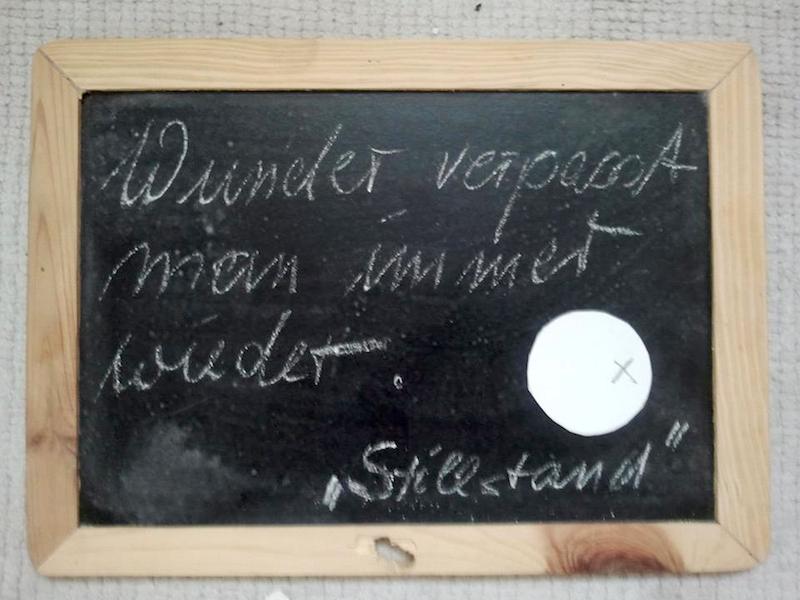 Wunder verpasst
man immer
wieder.
x
„Stillstand"